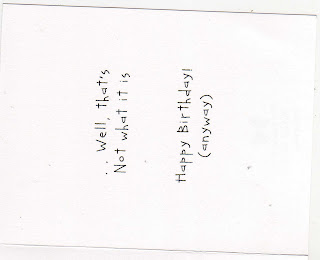 ... Well, that's
Not what it is
Happy Birthday!
(anyway)